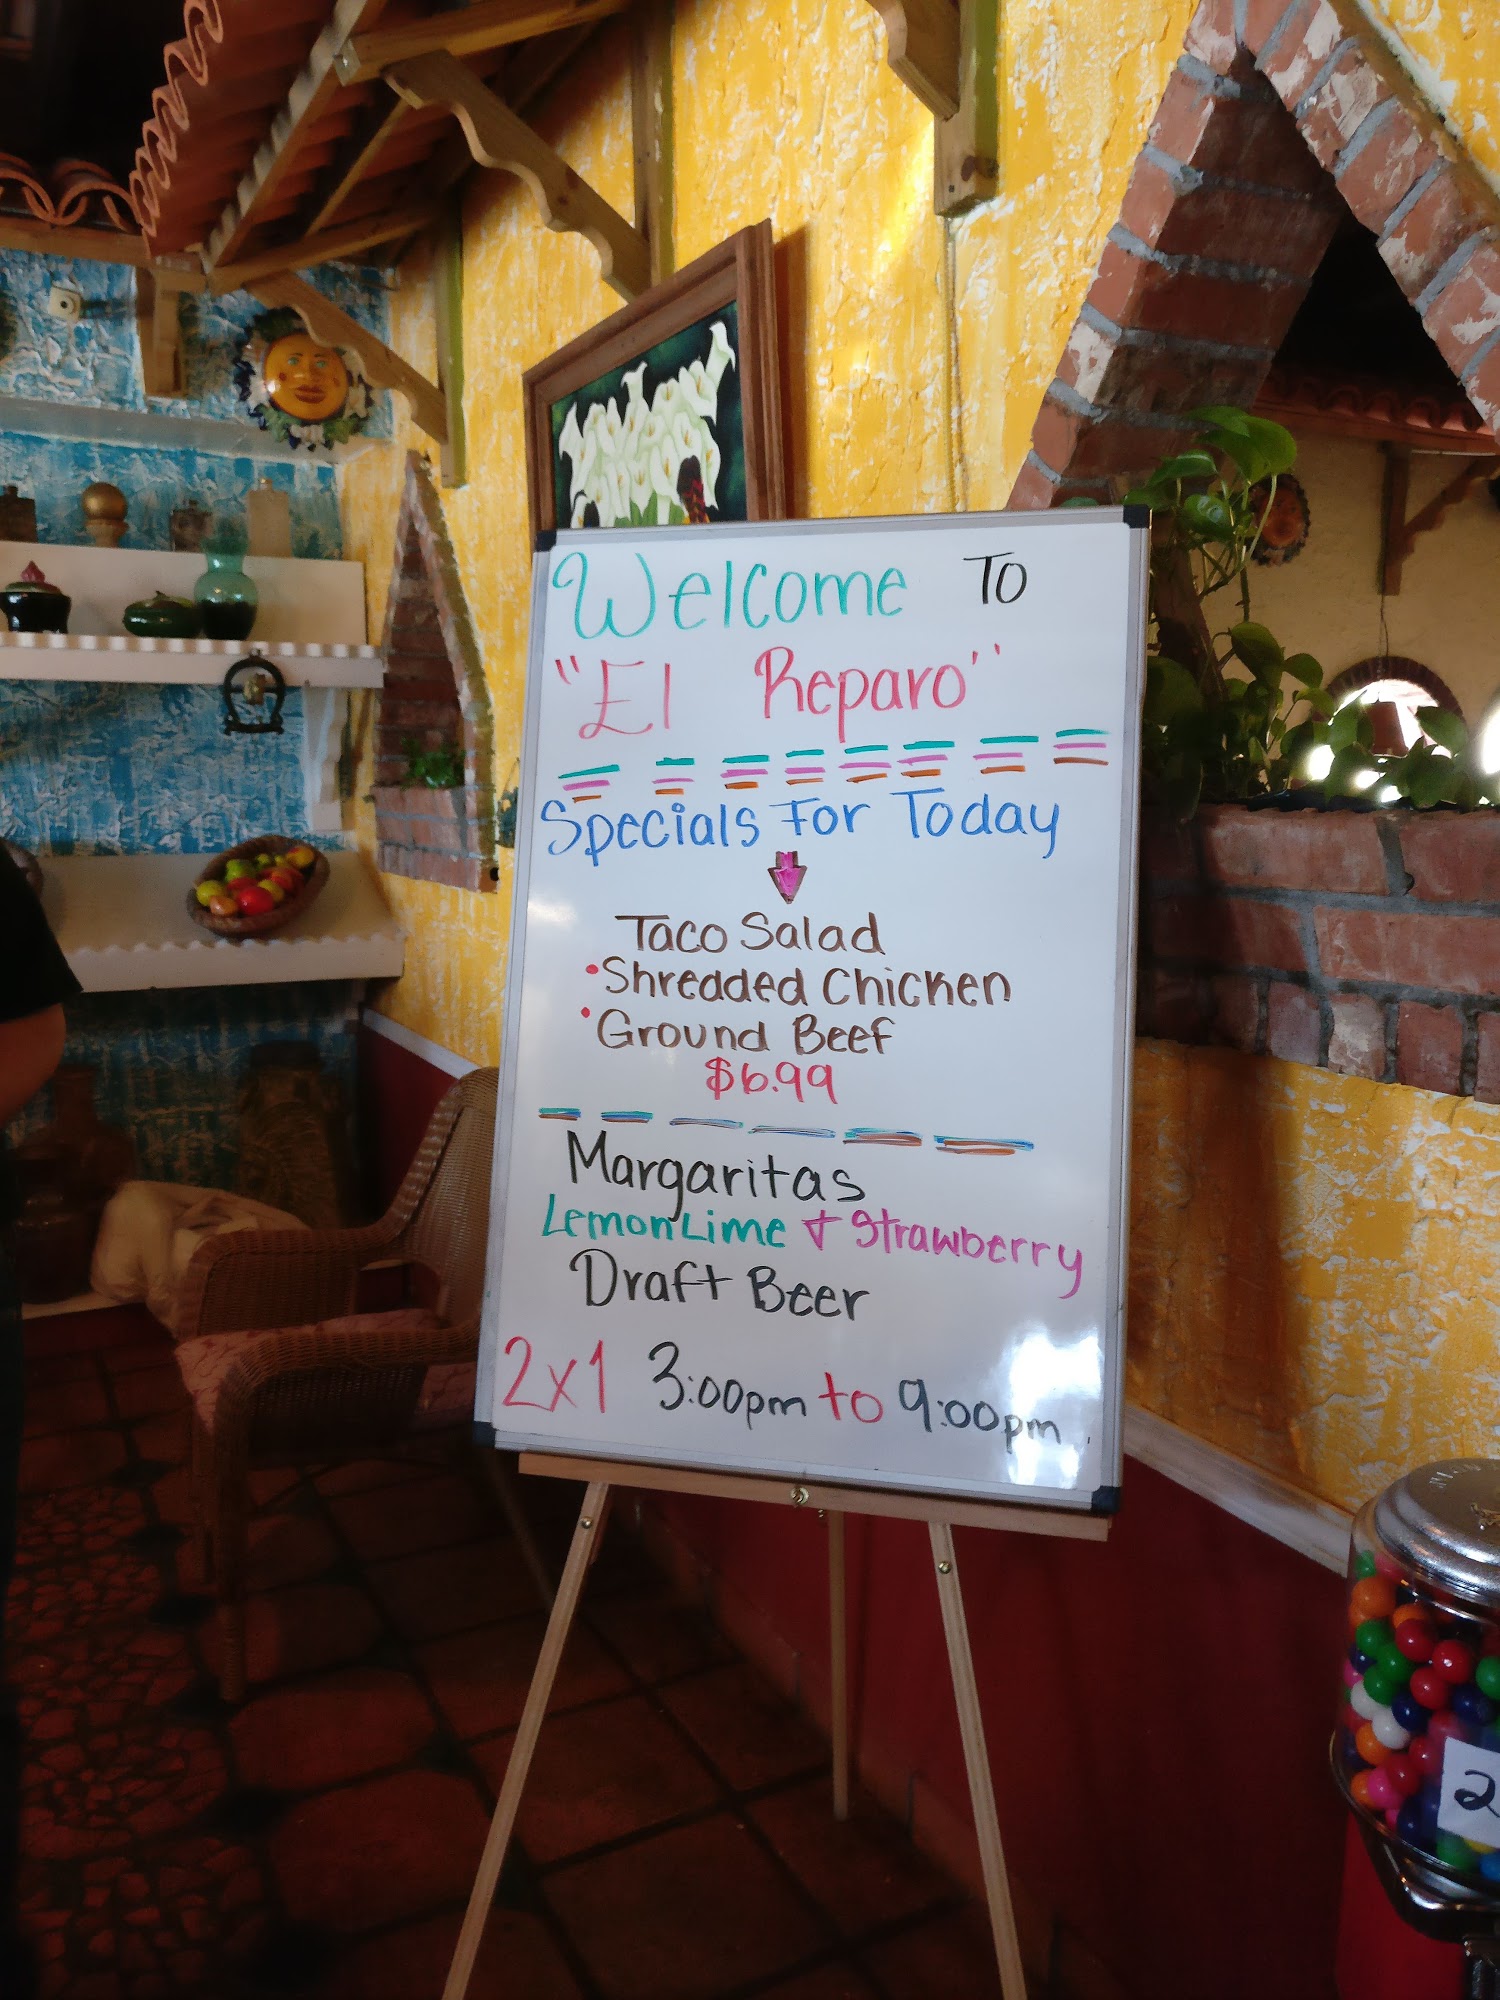 Welcome To
"El Reparo"
Specials For Today
Taco Salad
• Shredded Chicken
• Ground Beef
$6.99
Margaritas
Lemon Lime & Strawberry
Draft Beer
2x1 3:00pm to 9:00pm
2